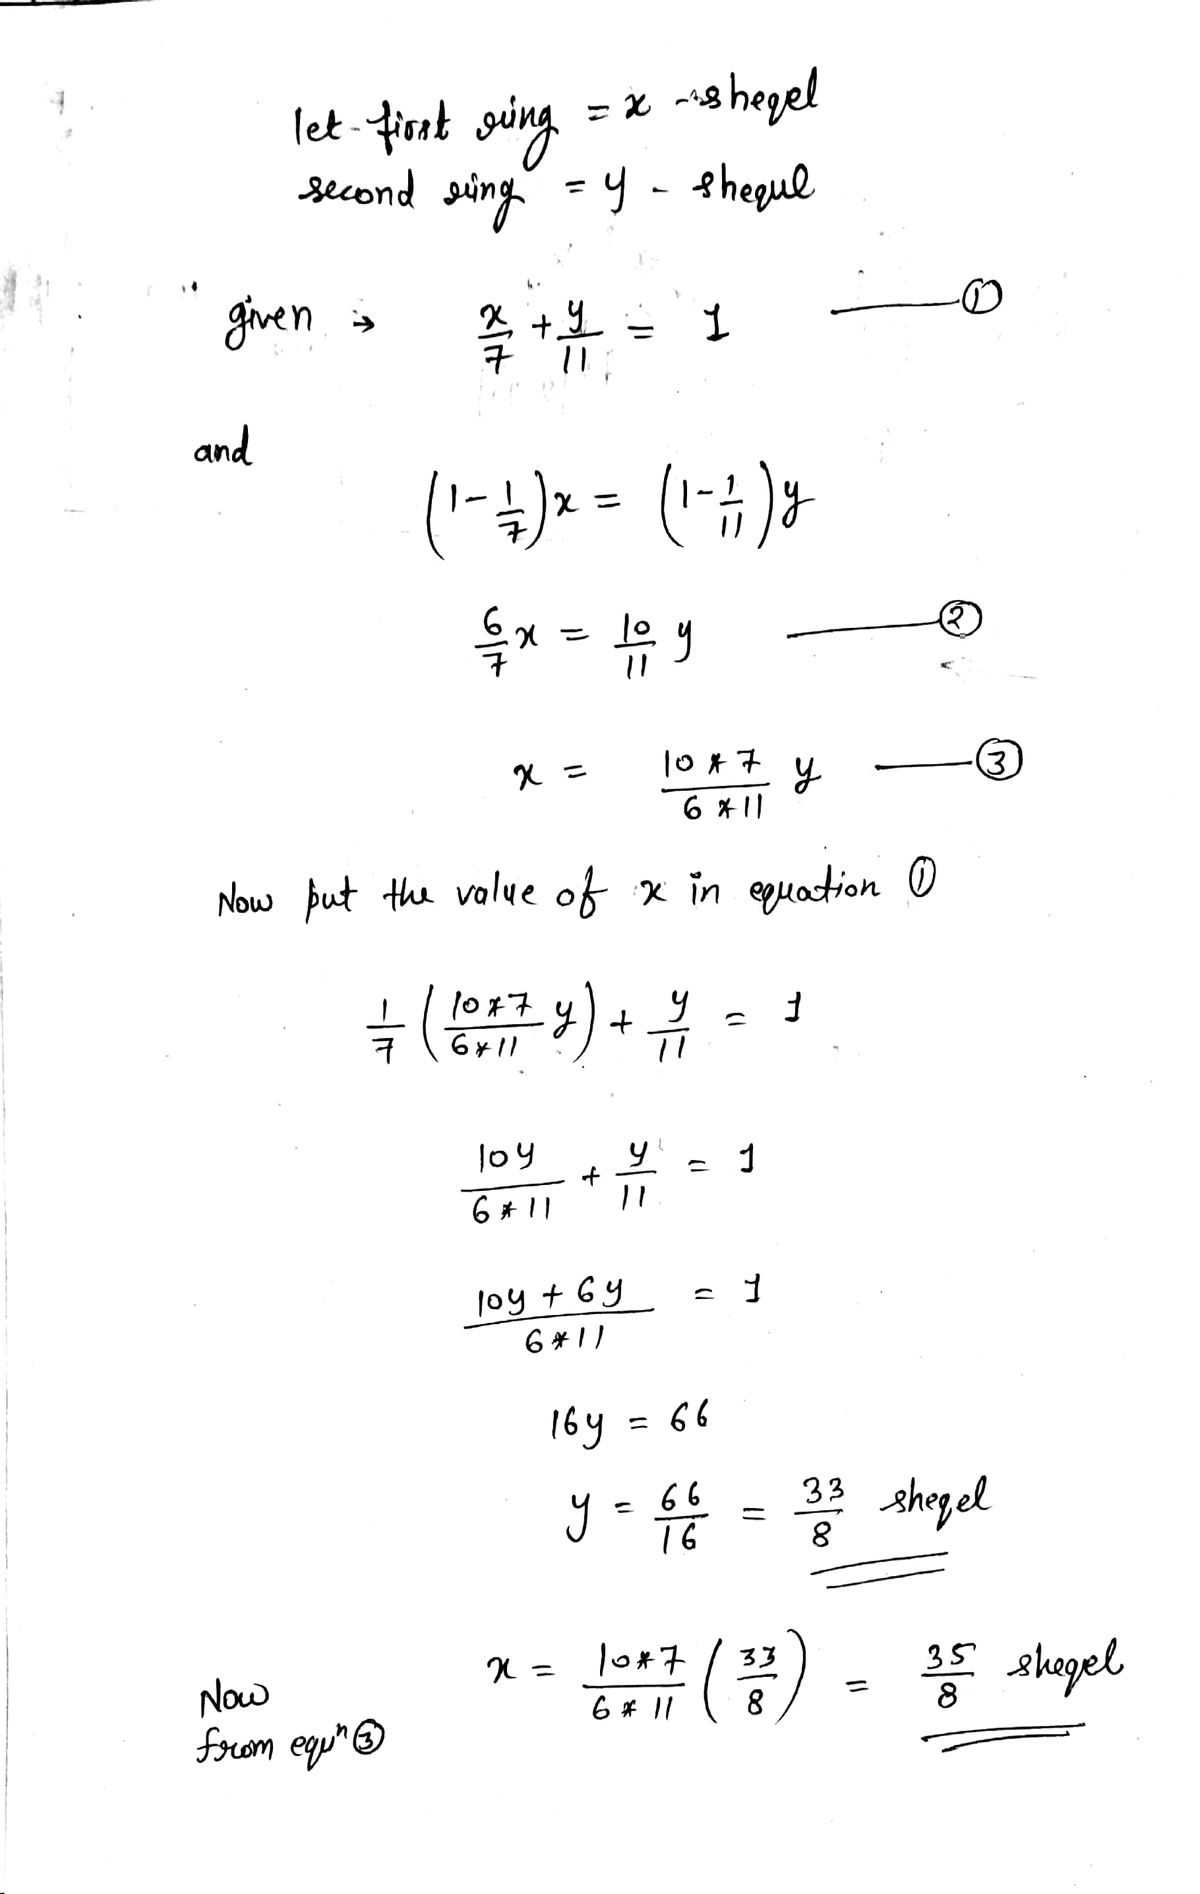 let first ring = x - sheqel
second ring = y - shequl
given → x/7 + y/11 = 1 —— ①
and
(1 - 1/7)x = (1 - 1/11)y
6/7 x = 10/11 y —— ②
x = (10*7)/(6*11) y —— ③
Now put the value of x in equation ①
1/7 ((10*7)/(6*11) y) + y/11 = 1
10y/(6*11) + y/11 = 1
(10y + 6y)/(6*11) = 1
16y = 66
y = 66/16 = 33/8 sheqel
x = (10*7)/(6*11) (33/8) = 35/8 sheqel
Now
from equⁿ ③